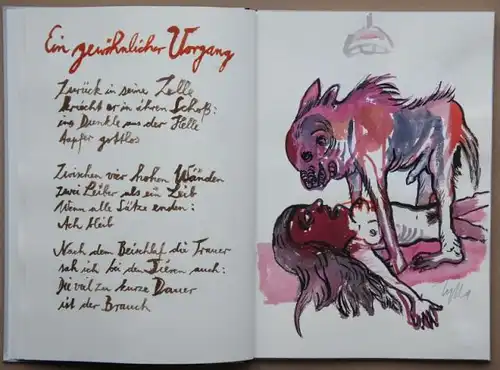 Ein gewöhnlicher Vorgang
Zurück in seine Zelle
kriecht er in ihren Schoß:
ins Dunkle aus der Helle
tapfer gottlos
Zwischen vier hohen Wänden
zwei Leiber als ein Leib
Wenn alle Sätze enden:
Ach bleib
Nach dem Beischlaf die Trauer
sah ich bei den Tieren auch:
Die viel zu kurze Dauer
ist der Brauch